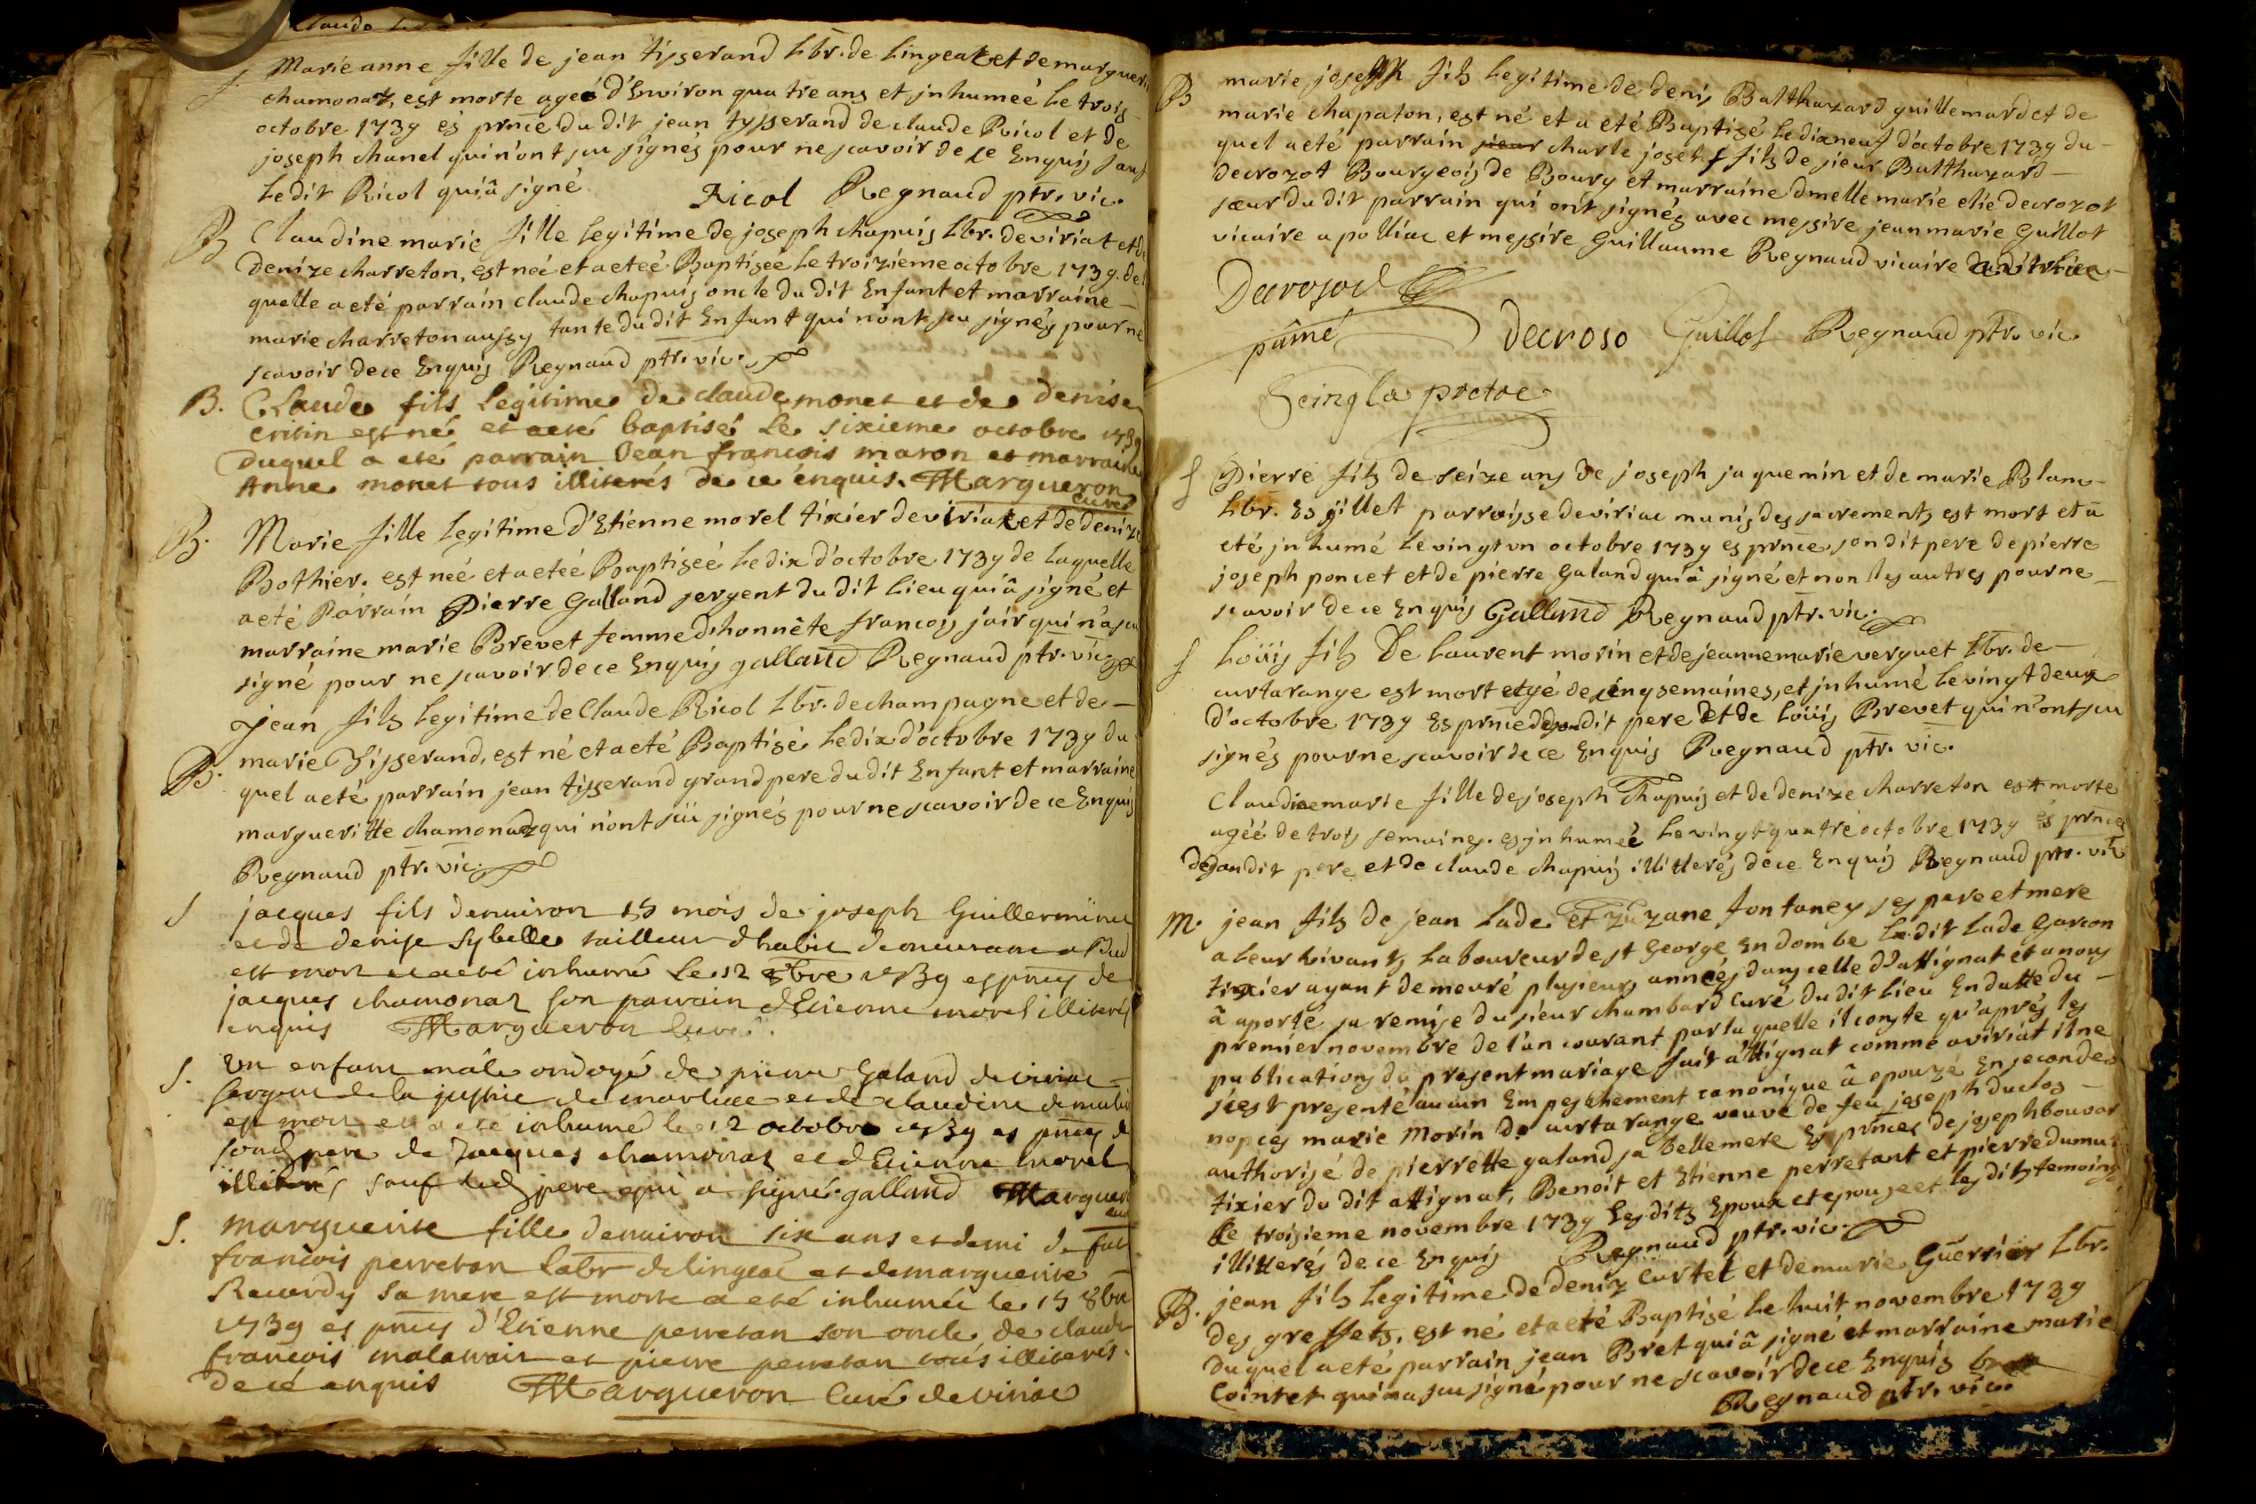 Claude
S. Marie anne fille de jean tisserand Lbr. de Lingeat et de margueri
chamonaz, est morte ageé d'Environ quatre ans et jnhumeé Le trois
octobre 1739 es prnce du dit jean tysserand de claude Ricol et de
joseph chanel qui n'ont sçu signés pour ne scavoir de ce Enquis sauf
Ledit Ricol qui â signé Ricol Regnaud ptr. vic.
B Claudine marie fille legitime de joseph chapuis Lbr. de viriat et de
Denize charreton, est neé et a eteé Baptiseé Le troizieme octobre 1739. de l
quelle a eté parrain claude chapuis oncle du dit Enfant et marraine
marie charreton aussy tante du dit Enfant qui n'ont sçu signés pour ne
scavoir de ce Enquis Regnaud ptr. vic.
B. Claude fils Légitime de claude monet et de denise
critin est né et aeté baptisé Le sixieme octobre 1739
Duquel a eté parrain Jean francois maron et marraine
Anne monet tous illiterés de ce énquis. Margueron
curé
B. Marie fille Legitime d'Etienne morel tixier de viriat et de denize
Bothier. est neé et a eteé Baptiseé Le dix d'octobre 1739 de Laquelle
a eté Parrain Pierre Galland sergent du dit Lieu qui â signé et
marraine marie Brevet femme d'honnête francois jair qui n'a sçu
signé pour ne scavoir de ce Enquis galland Regnaud ptr. vic.
Jean fils legitime de Claude Ricol Lbr. de champagne et de
B. marie Tisserand, est né et a eté Baptisé Le dix d'octobre 1739 du
quel a eté parrain jean tysserand grand pere du dit Enfant et marraine
margueritte chamonaz qui n'ont sçu signés pour ne scavoir de ce Enquis
Regnaud ptr. vic.
S jacques fils denuiron 15 mois de joseph Guillerminet
et de denise Sybelle tailleur dhabit demeurant a
est mort et aeté inhumé Le 12 8bre 1739 es pnces de
jacques chamonaz son parrain d'Etienne morel illiterés
enquis Margueron curé
S. Un enfant mâle ondoyé de pierre Galand de viriac
sergent de la justice de marlieu et de claudine
est mort et a eté inhumé le 12 octobre 1739 es pnces de
sond. pere de Jacques chamonaz et d'Etienne morel
illiterés sauf led. pere qui a signé. galland Margueron
curé
S. marguerite fille denuiron six ans et demi de fut
francois perretan Labr de lingeat et de marguerite
Recurdy sa mere est morte a eté inhumée le 15 8bre
1739 es pnces d'Etienne perretan son oncle de claude
francois malavrain et pierre perretan tous illiterés
de ce enquis Margueron Curé de viriac
B marie joseph fils Legitime de denis Balthazard guillemardet de
marie chapaton, est né et a eté Baptisé Le dixneuf d'octobre 1739 du
quel a eté parrain sieur charle josef fils de sieur Balthazard
Decrozot Bourgeois de Bourg et marraine dmelle marie elie decrozot
sœur du dit parrain qui ont signés avec messire jean marie Guillot
vicaire a polliac et messire Guillaume Regnaud vicaire dudit Lieu
Decrosod
decroso Guillot Regnaud ptr. vic.
S Pierre fils de seize ans de joseph jaquemin et de marie Blanc
Lbr. Es gillet parroisse de viriac munis des sacrements est mort et â
eté jnhumé Le vingt vn octobre 1739 es prnce son dit pere de pierre
joseph poncet et de pierre Galand qui â signé et non les autres pour ne
scavoir de ce Enquis Galland Regnaud ptr. vic.
S Loüis fils De Laurent morin et de jeanne marie verguet Lbr. de
curtarange est mort agé de cinq semaines, et jnhumé Le vingt deux
d'octobre 1739 Es prnce de son dit pere et de Loüis Brevet qui n'ont sçu
signés pour ne scavoir de ce Enquis Regnaud ptr. vic.
Claudine marie fille de joseph chapuis et de denize charreton est morte
ageé de trois semaines. es jnhumeé Le vingt quatre octobre 1739 es prnces
de son dit pere et de claude chapuis illitterés de ce Enquis Regnaud ptr. vic
M. jean fils de jean Lade et zuzane fontaney ses pere et mere
a Leur vivants Laboureur de st George En dombe Ledit Lade Garcon
tixier ayant demeuré plusieurs anneés dans celle d'attignat et a nous
â aporté sa remise du sieur chambard Curé du dit Lieu En datte du
premier novembre de l'an courant par la quelle il conste qu'aprés les
publications du present mariage fait a attignat comme a viriat il ne
s'est presenté aucun Empeschement canonique â epouzé En secondes
nopces marie Morin de curtarange veuve de feu joseph duclos
authorisé de pierrette galand sa Belle mere Es prnces de joseph bouvar
tixier du dit attignat, Benoit et Etienne perretant et pierre dumas
Le troisieme novembre 1739 Lesdits Epoux et epouse et lesdits temoins
illitterés de ce Enquis Regnaud ptr. vic.
B. jean fils Legitime de deniz Curtet et de marie Guerrier Lbr.
des greffets, est né et a eté Baptisé Le huit novembre 1739
Duquel a eté parrain jean Bret qui â signé et marraine marie
Cointet qui n'a sçu signé pour ne scavoir de ce Enquis bret
Regnaud ptr. vic.